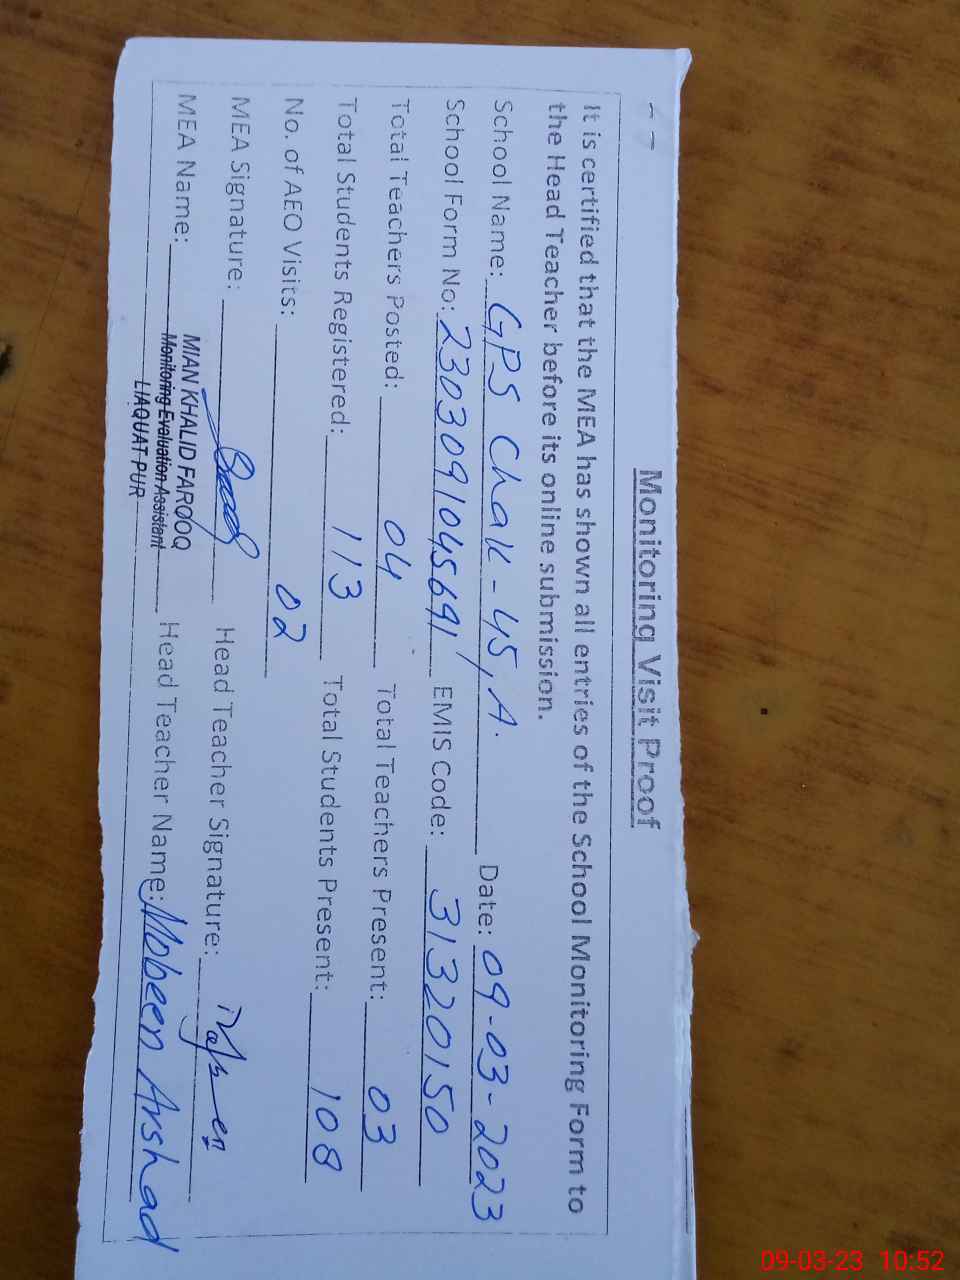 Monitoring Visit Proof
It is certified that the MEA has shown all entries of the School Monitoring Form to
the Head Teacher before its online submission.
School Name: GPS Chak-45,A. Date: 09-03-2023
School Form No: 2303091045691 EMIS Code: 31320150
Total Teachers Posted: 04 Total Teachers Present: 03
Total Students Registered: 113 Total Students Present: 108
No. of AEO Visits: 02
MEA Signature: Head Teacher Signature:
MEA Name: MIAN KHALID FAROOQ Head Teacher Name: Mobeen Arshad
Monitoring Evaluation Assistant
LIAQUAT PUR
09-03-23 10:52